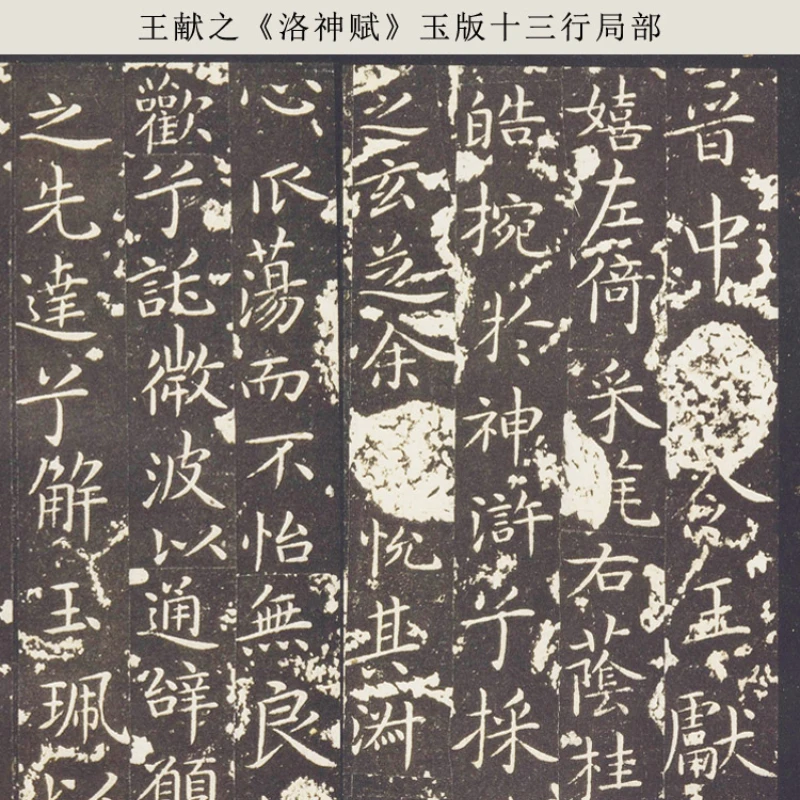 王献之《洛神赋》玉版十三行局部
晉中令王獻
嬉左倚采旄右蔭桂
皓捥於神滸兮採
之玄芝余悅其淑
心振蕩而不怡無良
歡兮託微波以通辭願
之先達兮解玉珮以